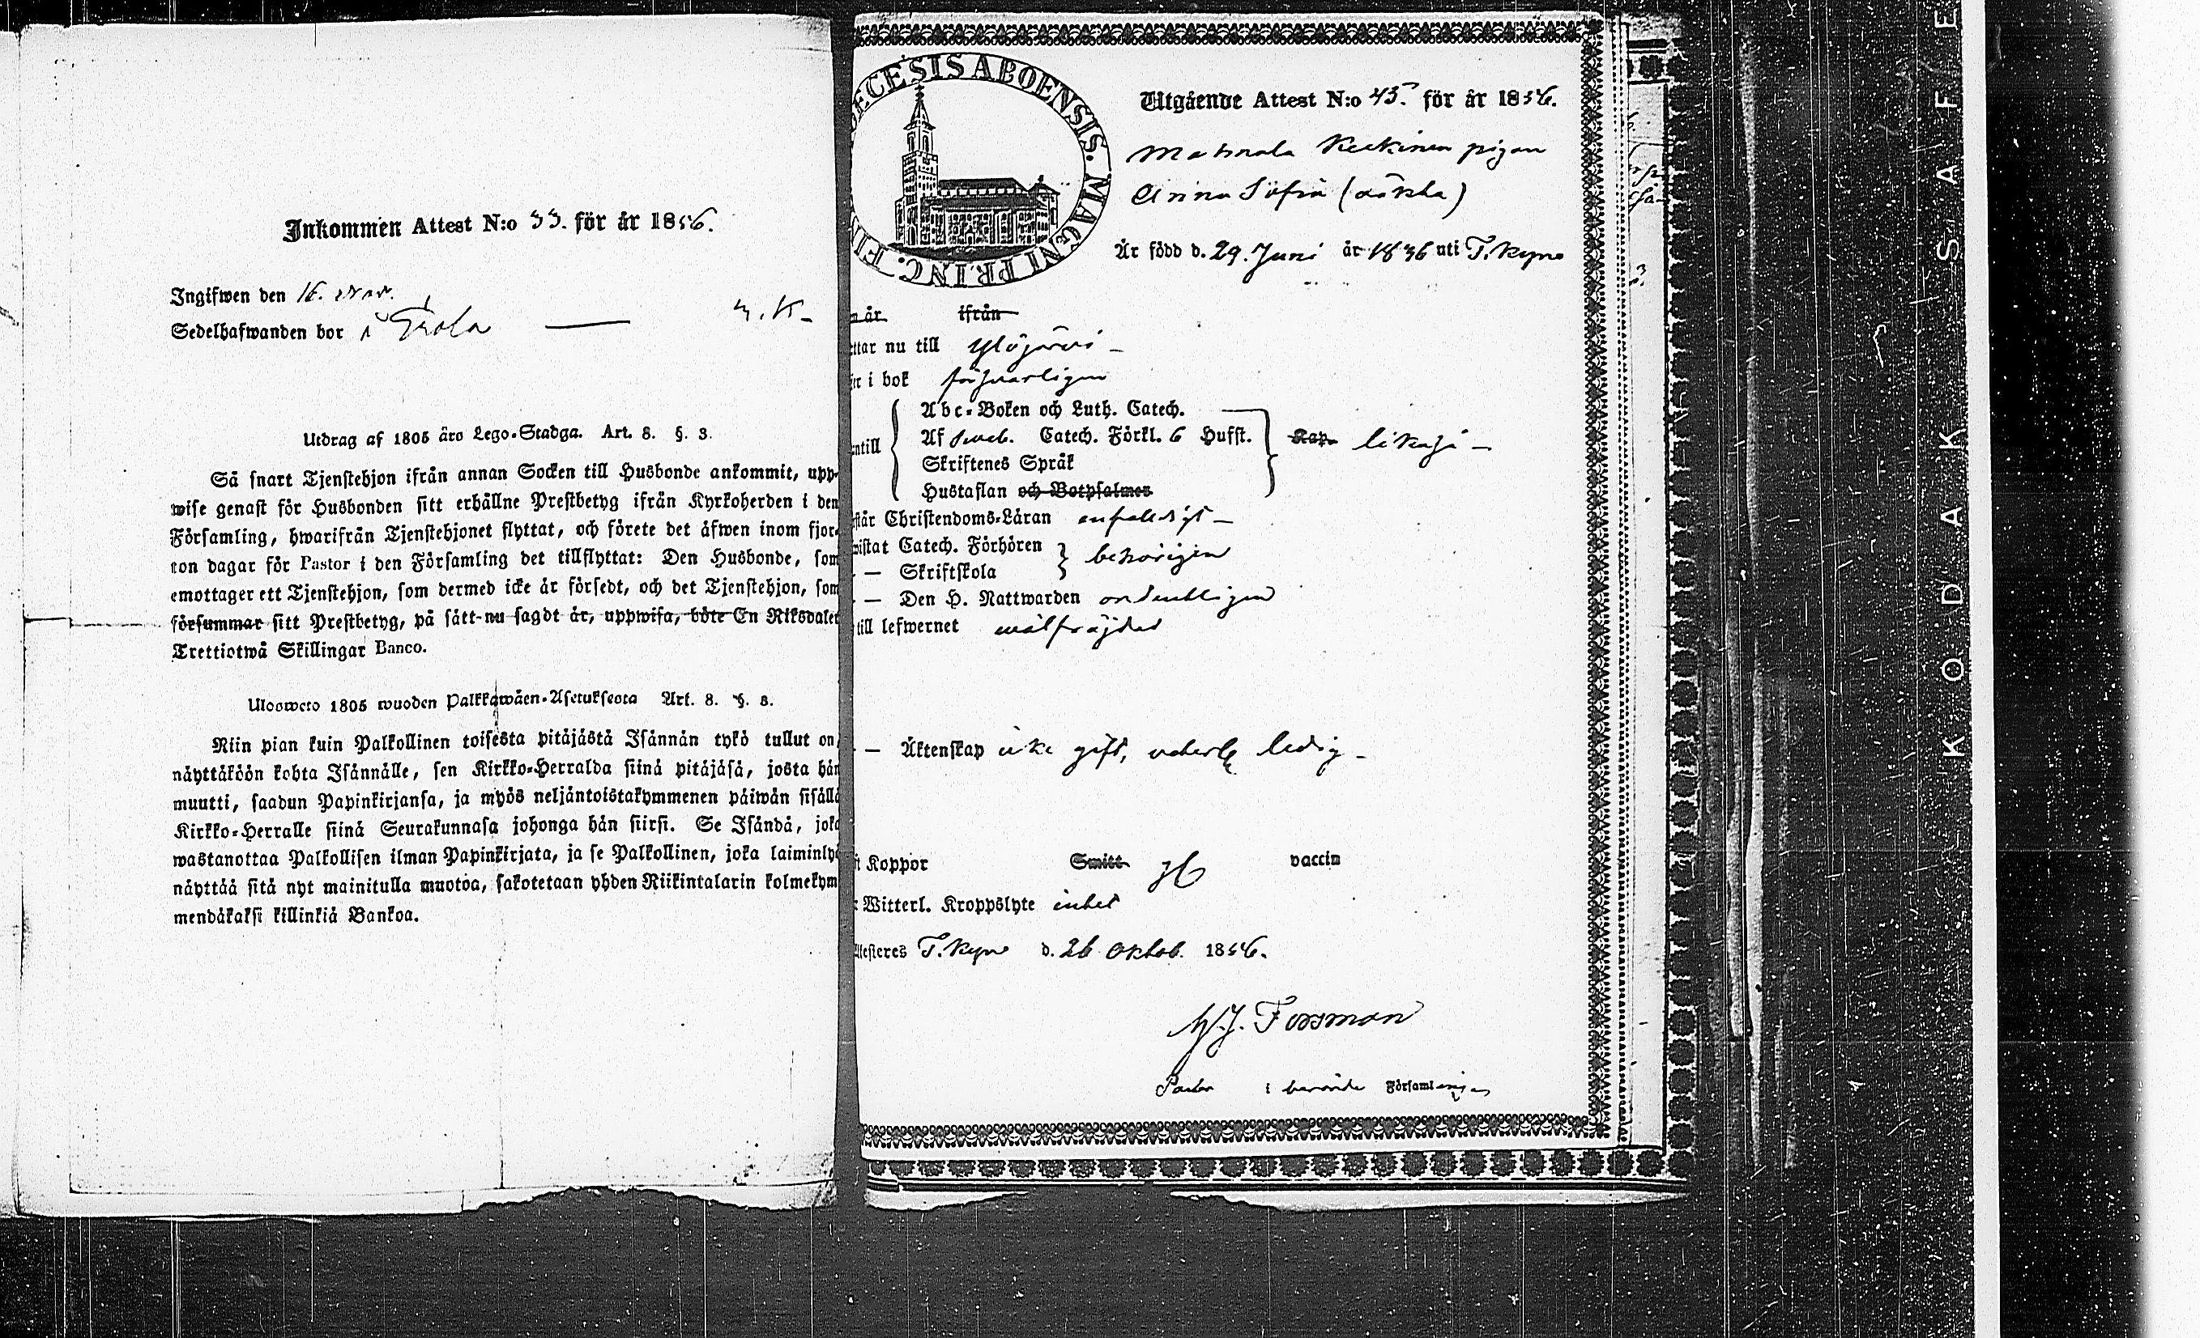 Inkommen Attest N:o 33. för år 1856.
Ingifwen den 16. Nov.
Sedelhafwanden bor i
Utdrag af 1805 års Lego-Stadga. Art. 8. §. 3.
Så snart Tjenstehjon ifrån annan Socken till Husbonde ankommit, upp-
wise genast för Husbonden sitt erhållne Prestbetyg ifrån Kyrkoherden i den
Församling, hwarifrån Tjenstehjonet flyttat, och förete det äfwen inom fjor-
ton dagar för Pastor i den Församling det tillflyttat: Den Husbonde, som
emottager ett Tjenstehjon, som dermed icke är försedt, och det Tjenstehjon, som
försummar sitt Prestbetyg, på sätt nu sagdt är, uppwisa, böte En Riksdaler
Trettiotwå Skillingar Banco.
Ulosweto 1805 wuoden Palkkawäen-Asetuksesta Art. 8. §. 3.
Niin pian kuin Palkollinen toisesta pitäjästä Isännän tykö tullut on,
näyttäköön kohta Isännälle, sen Kirkko-Herralda siinä pitäjäsä, josta hän
muutti, saadun Papinkirjansa, ja myös neljäntoistakymmenen päiwän sisällä
Kirkko-Herralle siinä Seurakunnasa johonga hän siirsi. Se Isändä, joka
wastanottaa Palkollisen ilman Papinkirjata, ja se Palkollinen, joka laiminlyö
näyttää sitä nyt mainitulla muotoa, sakotetaan yhden Riikintalarin kolmekym
mendäkaksi killinkiä Bankoa.
ECESIS ABOENSIS. MAGNI PRINC. FIN
Utgående Attest N:o 45. för år 1856.
Keckinen pigan
Anna Sofia
Är född d. 29. Juni år 1836 uti T.kyro
år ifrån
ttar nu till Ylöjärvi
i bok försvarligen
Abc-Boken och Luth. Catech.
Af Sweb. Catech. Förkl. 6 Hufst. Kap. likaså
ntill
Skriftenes Språk
Hustaflan och Botpsalmer
står Christendoms-Läran enfaldigt
wistat Catech. Förhören behörigen
— Skriftskola
— Den H. Nattwarden ordentligen
till lefwernet wälfräjdad
— Äktenskap icke gift, ledig
t Koppor Smitt vaccin
Witterl. Kroppslyte intet
ttesteres T.kyro d. 26 Oktob. 1856.
Forsman
Pastor i berörde Församlingen
KODAK SAFE